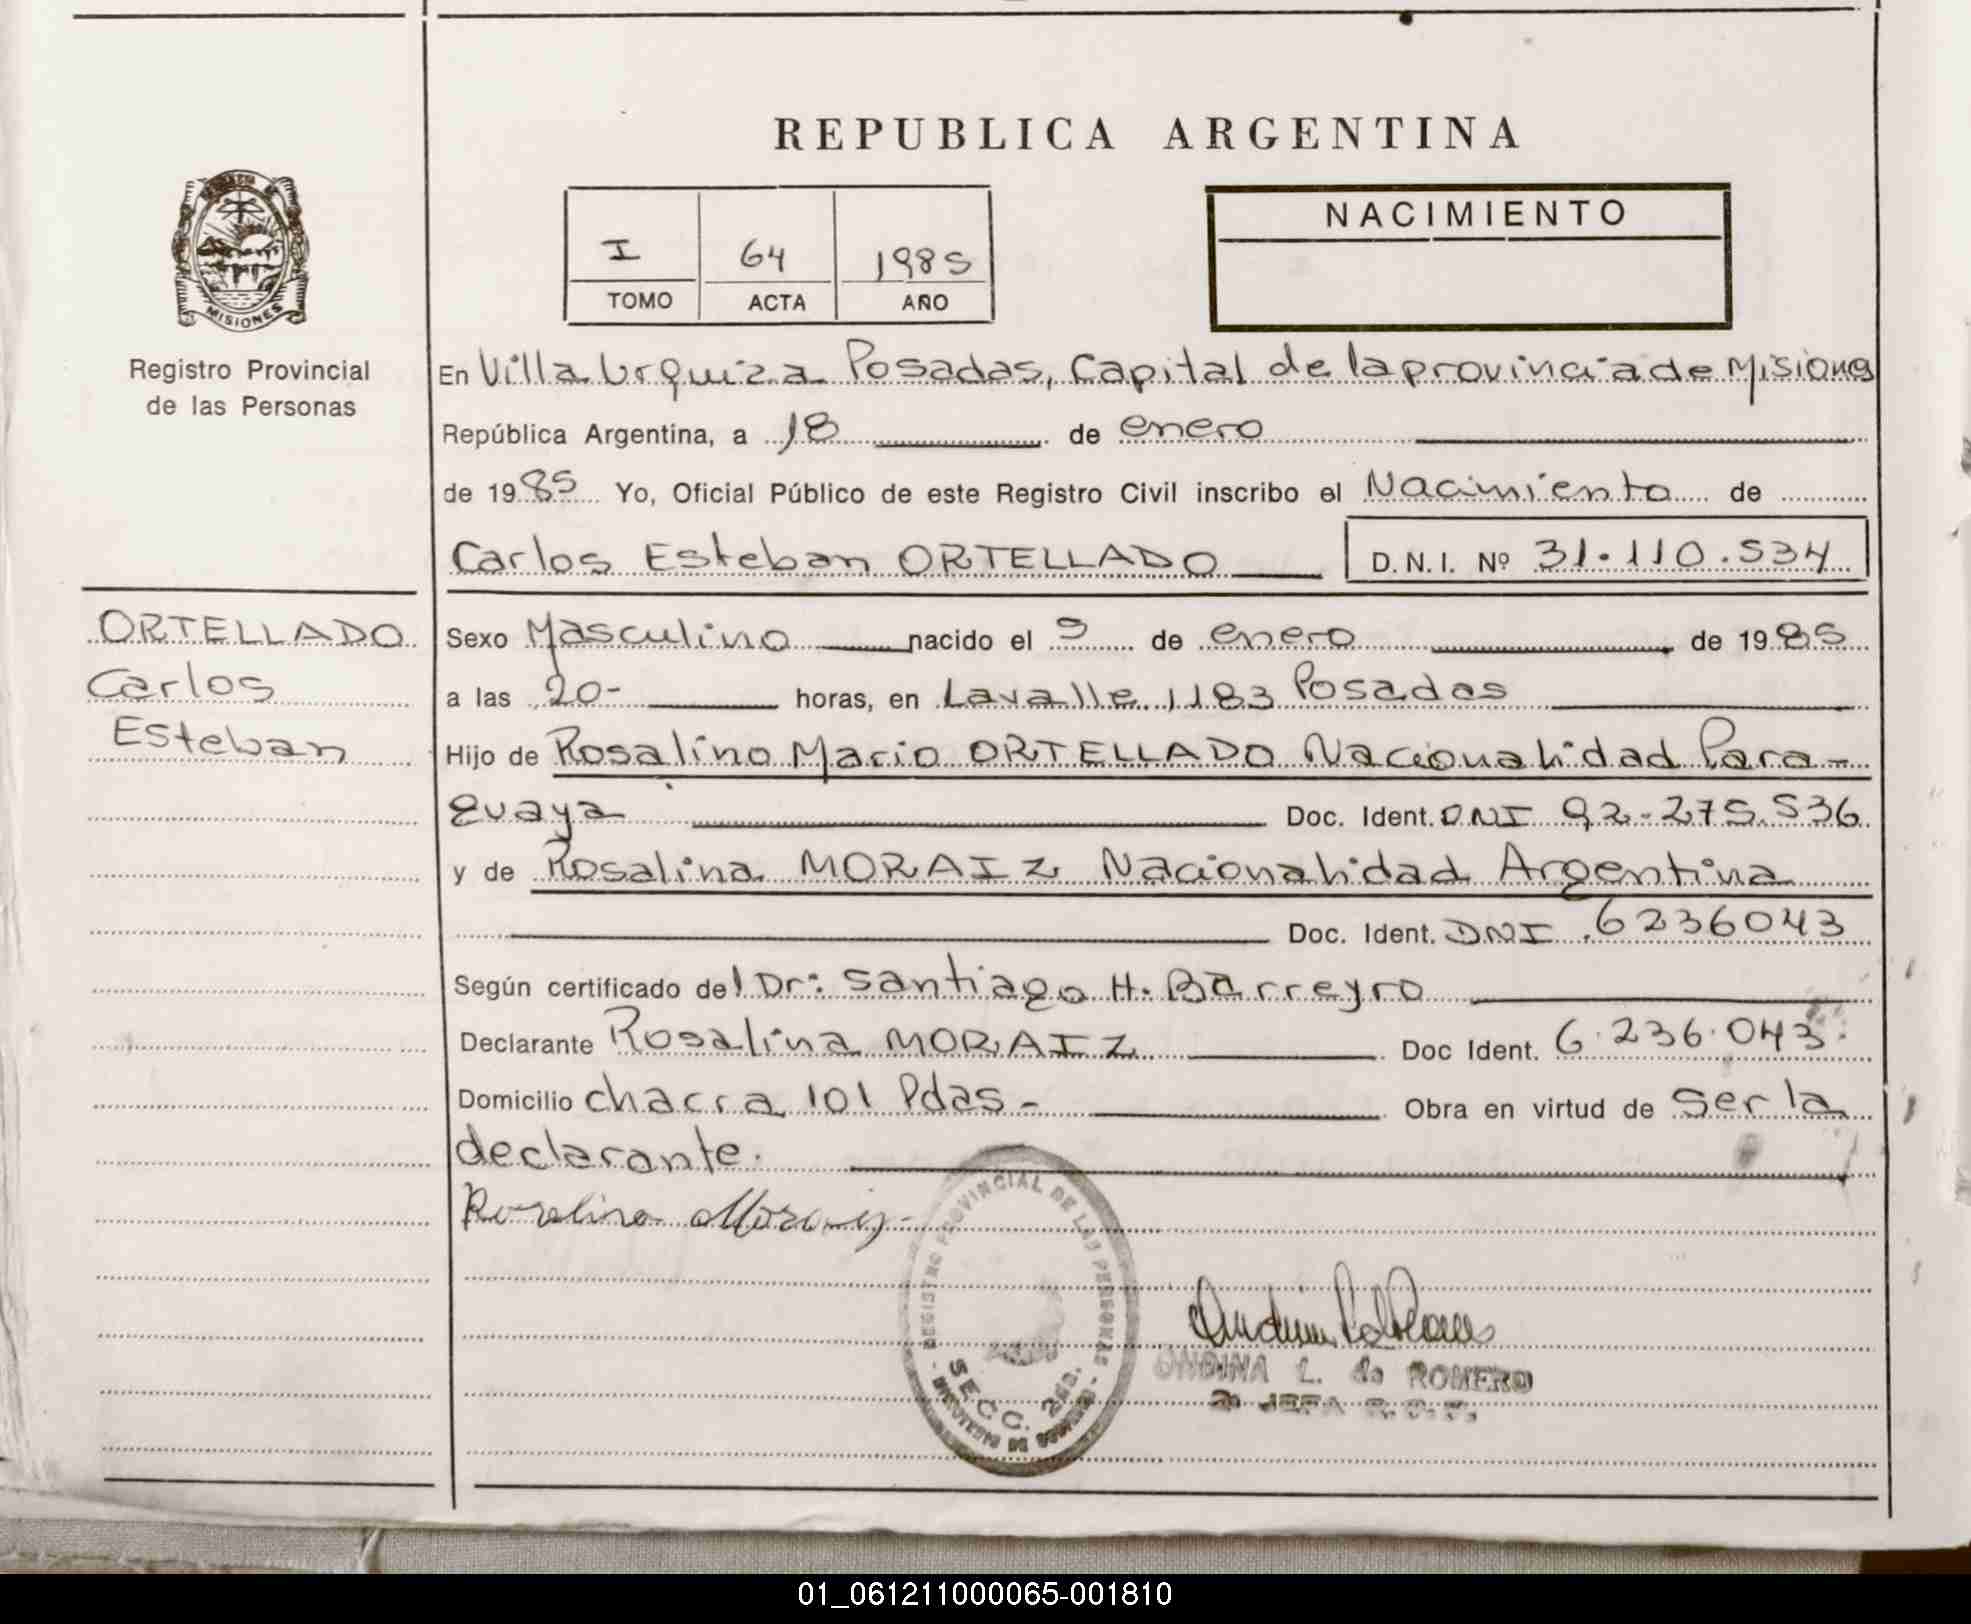 REPUBLICA ARGENTINA
I 64 1985
TOMO ACTA AÑO
NACIMIENTO
MISIONES
Registro Provincial
de las Personas
En Villa Urquiza Posadas, Capital de la provincia de Misiones
República Argentina, a 18 de enero
de 1985 Yo, Oficial Público de este Registro Civil inscribo el Nacimiento de
Carlos Esteban ORTELLADO D.N.I. Nº 31.110.534
ORTELLADO
Carlos
Esteban
Sexo Masculino nacido el 9 de enero de 1985
a las 20- horas, en Lavalle 1183 Posadas
Hijo de Rosalino Mario ORTELLADO Nacionalidad Para-
guaya Doc. Ident. DNI 92-275.536
y de Rosalina MORAIZ Nacionalidad Argentina
Doc. Ident. DNI 6236043
Según certificado del Dr: Santiago H. Barreyro
Declarante Rosalina MORAIZ Doc Ident. 6.236.043.
Domicilio chacra 101 Pdas- Obra en virtud de ser la
declarante.
Rosalina Moraiz-
REGISTRO PROVINCIAL DE LAS PERSONAS
SECC. 2da.
ONDINA L. de ROMERO
JEFA R.C.P.
01_061211000065-001810